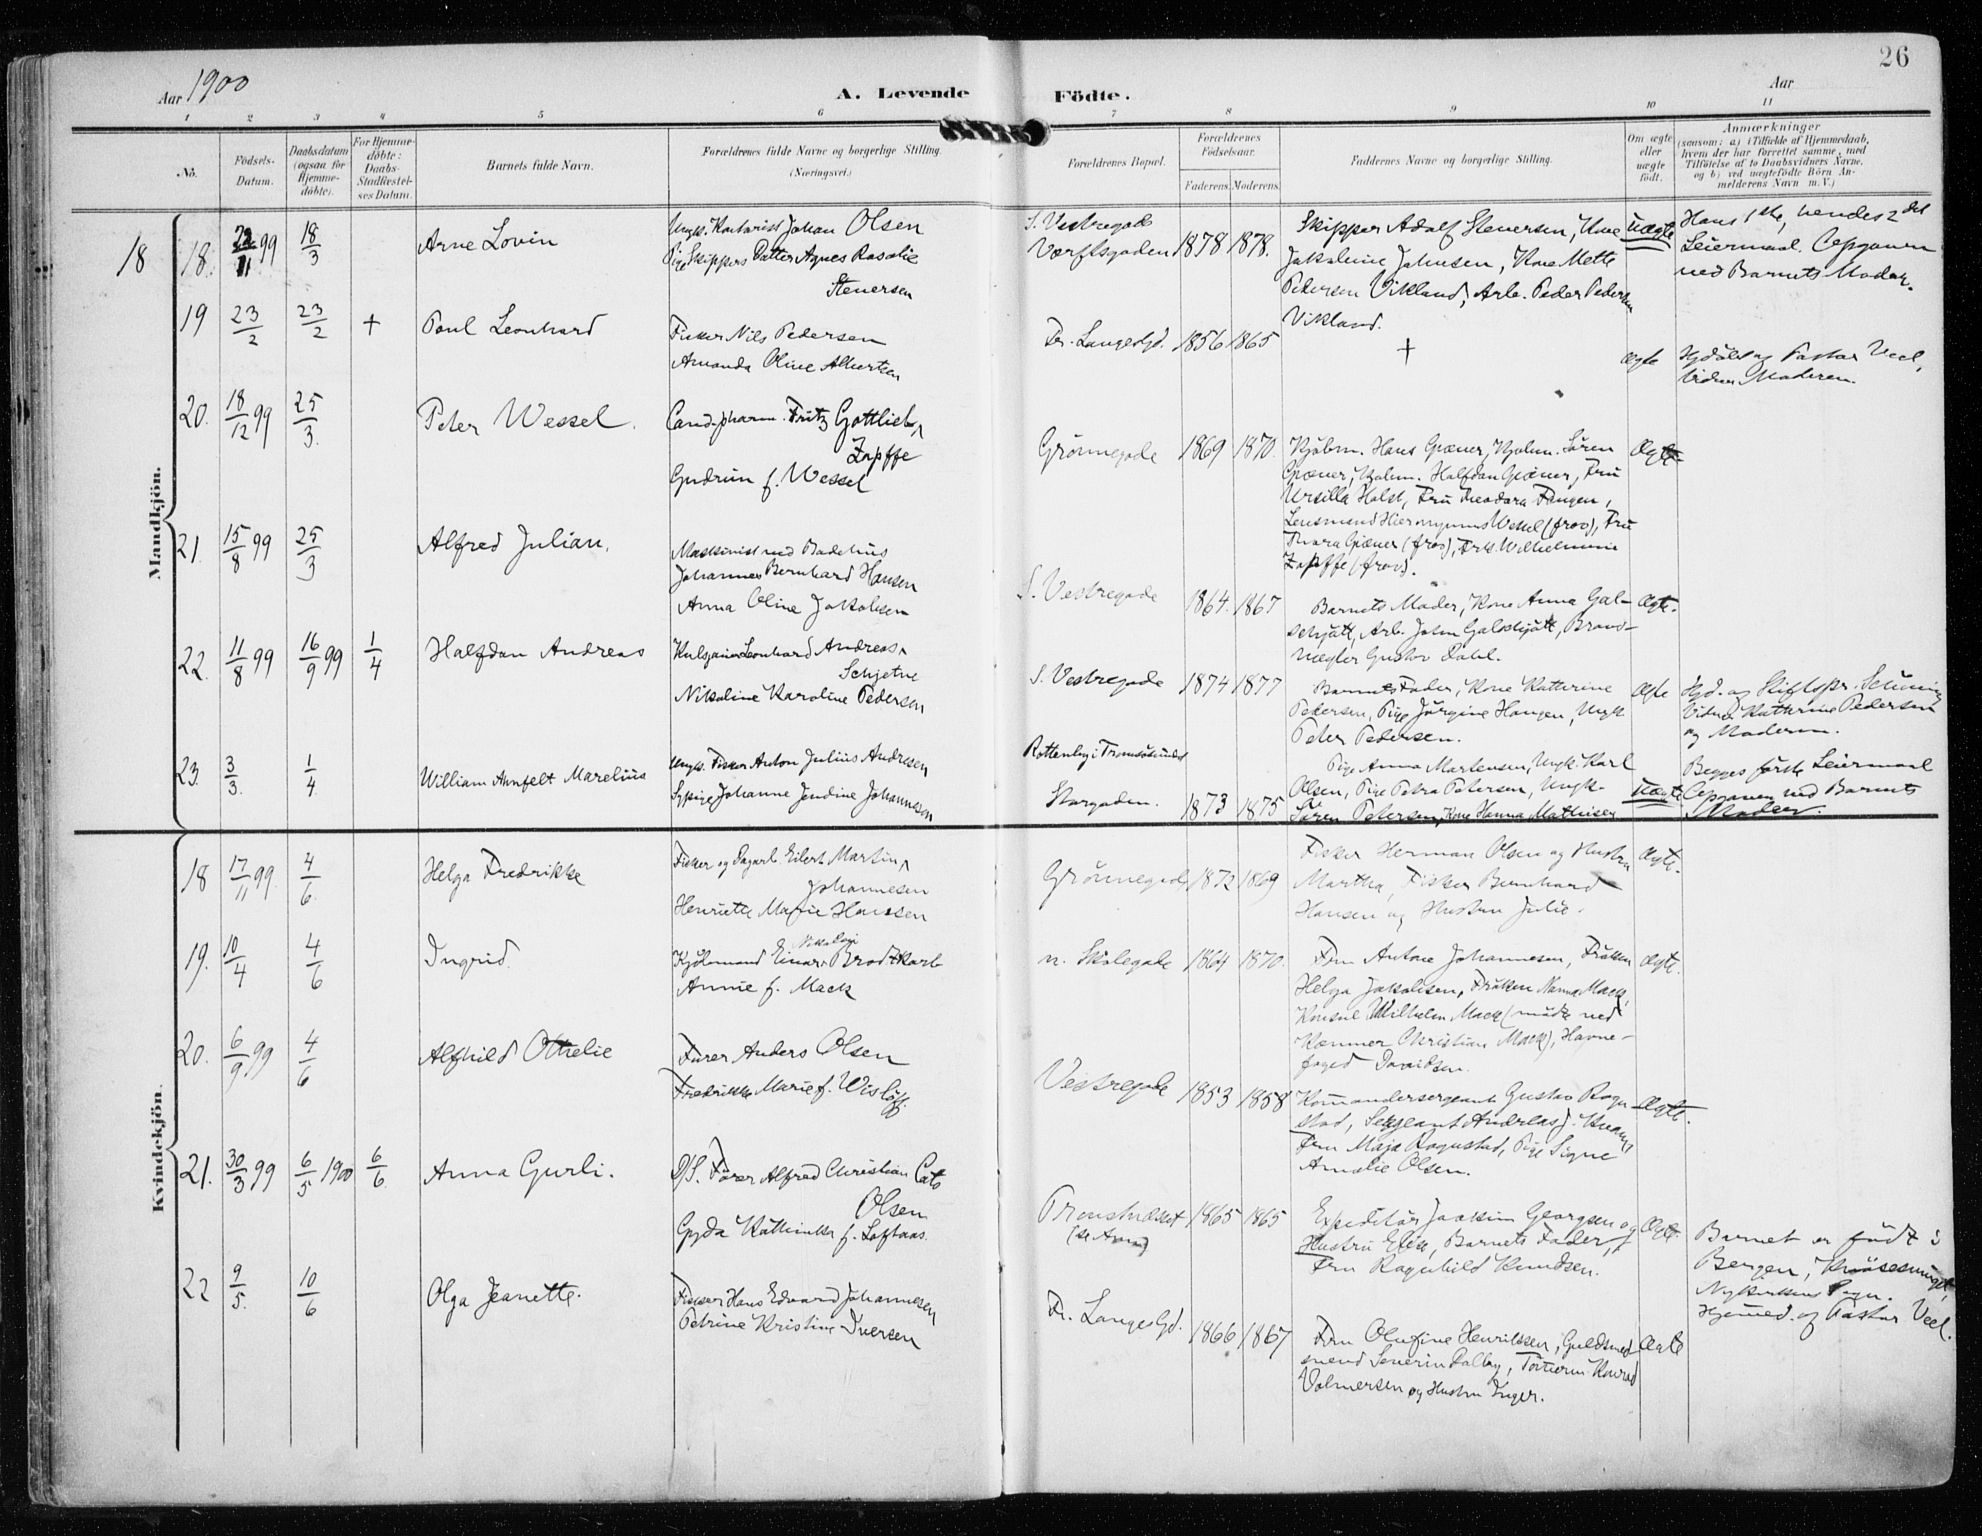 26
Aar 1900
A. Levende Födte.
Aar
1 2 3 4 5 6 7 8 9 10 11
No.
Födsels-Datum.
Daabsdatum (ogsaa for Hjemme-döbte).
For Hjemme-döbte: Daabs-Stadfæstel-ses Datum.
Barnets fulde Navn.
Forældrenes fulde Navne og borgerlige Stilling. (Næringsvei.)
Forældrenes Bopæl.
Forældrenes Födselsaar.
Faderens. Moderens.
Faddernes Navne og borgerlige Stilling.
Om ægte eller uægte födt.
Anmærkninger
(saasom: a) i Tilfælde af Hjemmedaab, hvem der har forrettet samme, med Tilföielse af to Daabsvidners Navne. og b) ved uægtefödte Börn An-melderens Navn m. V.)
Mandkjön.
18 18. 22/11 99 18/3 Arne Lovin
Ungk. Kontorist Johan Olsen
Pige Skippers Datter Agnes Rosalie
Stenersen
S. Vestregade
Værftsgaden 1878 1878.
Skipper Adolf Stenersen, Kone
Jakobine Johnsen, Kone Mette
Pedersen Vikland, Arb. Peder Pedersen
Vikland.
Uægte
Hans 1ste, hendes 2det
Leiermaal. Opgaven
ved Barnets Moder.
19 23/2 23/2 + Paul Leonhard
Fisker Nils Pedersen
Amanda Oline Albertsen
Fr. Langesgd. 1856 1865
+
Ægte
Hjdöbt af Pastor Veel,
Vidner Moderen.
20. 18/12 99 25/3. Peter Wessel.
Cand. pharm. Fritz Gottlieb
Zapffe
Gudrun f. Wessel
Grönnegade 1869 1870.
Kjöbm. Hans Giæver, Kjöbm. Sören
Giæver, Kjöbm. Halfdan Giæver, Fru
Ursilla Holst, Fru Theodora Fangen,
Lensmand Hieronymus Wessel (frav), Fru
Thora Giæver (frav), Frk. Wilhelmine
Zapffe (frav).
Ægte
21. 15/8 99 25/3 Alfred Julian.
Maskinist ved Badehus
Johannes Bernhard Hansen
Anna Oline Jakobsen
S. Vestregade 1864. 1867
Barnets Moder, Kone Anna Gal-
schjött, Arb. John Galschjött, Brand-
vægter Gustav Dahl.
Ægte.
22. 11/8 99 16/9 99 1/4 Halfdan Andreas
Leonhard Andreas
Schjetne
Nikoline Karoline Pedersen
S. Vestregade 1874 1877
Barnets Fader, Kone Katherine
Pedersen, Pige Jörgine Hansen, Ungk.
Peter Pedersen.
Ægte
Hjd. af Stiftspr.
Vidner Katherine Pedersen
og Moderen.
23. 3/3. 1/4 William Amfelt Marelius
Ungk. Fisker Anton Julius Andresen
Sypige Johanne Jendine Johannesen
i Tromsösundet
Storgaden. 1873 1875
Pige Anna Martensen, Ungk. Karl
Olsen, Pige Petra Petersen, Ungk.
Sören Petersen, Kone Hanna Mathisen
Uægte
Begges förste Leiermaal
Opgaven ved Barnets
Moder.
Kvindekjön.
18 17/11 99. 4/6. Helga Fredrikke
Fisker og Dagarb. Eilert Martin
Johannesen
Henriette Marie Hanssen
Grönnegade 1872 1869
Fisker Herman Olsen og Hustru
Martha, Fisker Bernhard
Hansen og Hustru Julie.
Ægte.
19. 10/4 4/6 Ingrid.
Nikolai
Kjöbmand Einar Brodtkorb
Annie f. Mack
n. Skolegade 1864 1870.
Fru Antone Johannesen, Fröken
Helga Jakobsen, Fröken Nanna Mack,
Konsul Wilhelm Mack (mödte ved
Kæmner Christian Mack), Havne-
foged Davidsen.
Ægte.
20. 6/9 99 4/6 Alfhild Othelie
Furer Anders Olsen
Fredrikke Marie f. Wislöff.
Vestregade 1853 1858
Kommandersergeant Gustav Rogn-
stad, Sergeant Andreas J.
Fru Maja Rognstad, Pige Signe
Amalie Olsen.
Ægte.
21. 30/3 99 6/5 1900 6/6. Anna Gurli.
D/S. Förer Alfred Christian Cato
Olsen
Gyda Kathinka f. Loftaas.
1865 1865
Expeditör Joakim Georgsen og
Hustru Elen, Barnets Fader,
Fru Ragnhild Knudsen.
Ægte.
Barnet er födt i
Bergen,
Nykirkens Pgn.
Hjemmed. af Pastor Veel.
22 9/5. 10/6 Olga Jeanette.
Fisker Hans Edvard Johannesen
Petrine Kristine Iversen
Fr. Langesgd. 1866 1867
Fru Olufine Henriksen, Guldsmed-
svend Severin Dalby, Konrad
Volmersen og Hustru Inger.
Ægte